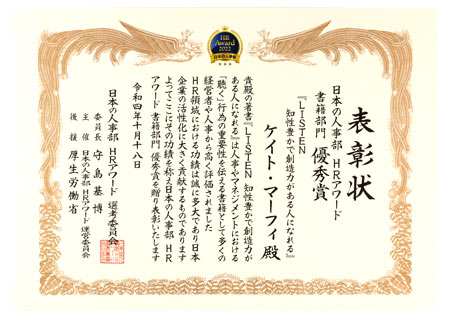 HR
Award
2022
日本の人事部
表彰状
日本の人事部 HRアワード
書籍部門 優秀賞
『LISTEN
知性豊かで創造力がある人になれる』
ケイト・マーフィ 殿
貴殿の著書『LISTEN 知性豊かで創造力が
ある人になれる』は人事やマネジメントにおける
「聴く」行為の重要性を伝える書籍として多くの
経営者や人事から高く評価されました
HR領域における功績は誠に多大であり日本
企業の活性化に大きく貢献するものであります
よってここにその功績を称え日本の人事部 HR
アワード 書籍部門 優秀賞を贈り表彰いたします
令和四年十月十八日
日本の人事部 HRアワード 選考委員会
委員長 守島基博
主催 日本の人事部「HRアワード」運営委員会
後援 厚生労働省